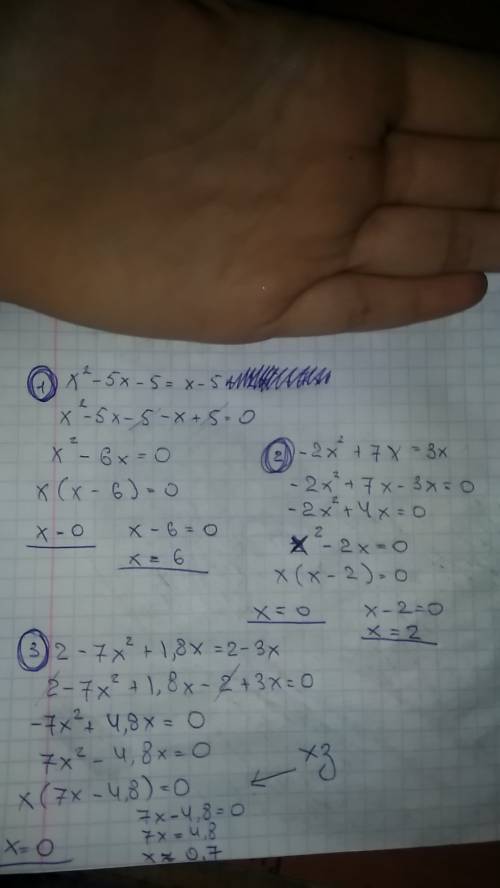 1 x² - 5x - 5 = x - 5
x² - 5x - 5 - x + 5 = 0
x² - 6x = 0
x (x - 6) = 0
x - 0 x - 6 = 0
x = 6
2 - 2x² + 7x = 3x
- 2x² + 7x - 3x = 0
- 2x² + 4x = 0
x² - 2x = 0
x (x - 2) = 0
x = 0 x - 2 = 0
x = 2
3 2 - 7x² + 1,8x = 2 - 3x
2 - 7x² + 1,8x - 2 + 3x = 0
-7x² + 4,8x = 0
7x² - 4,8x = 0
x (7x - 4,8) = 0 ← хз
7x - 4,8 = 0
7x = 4,8
x = 0 x ≈ 0,7